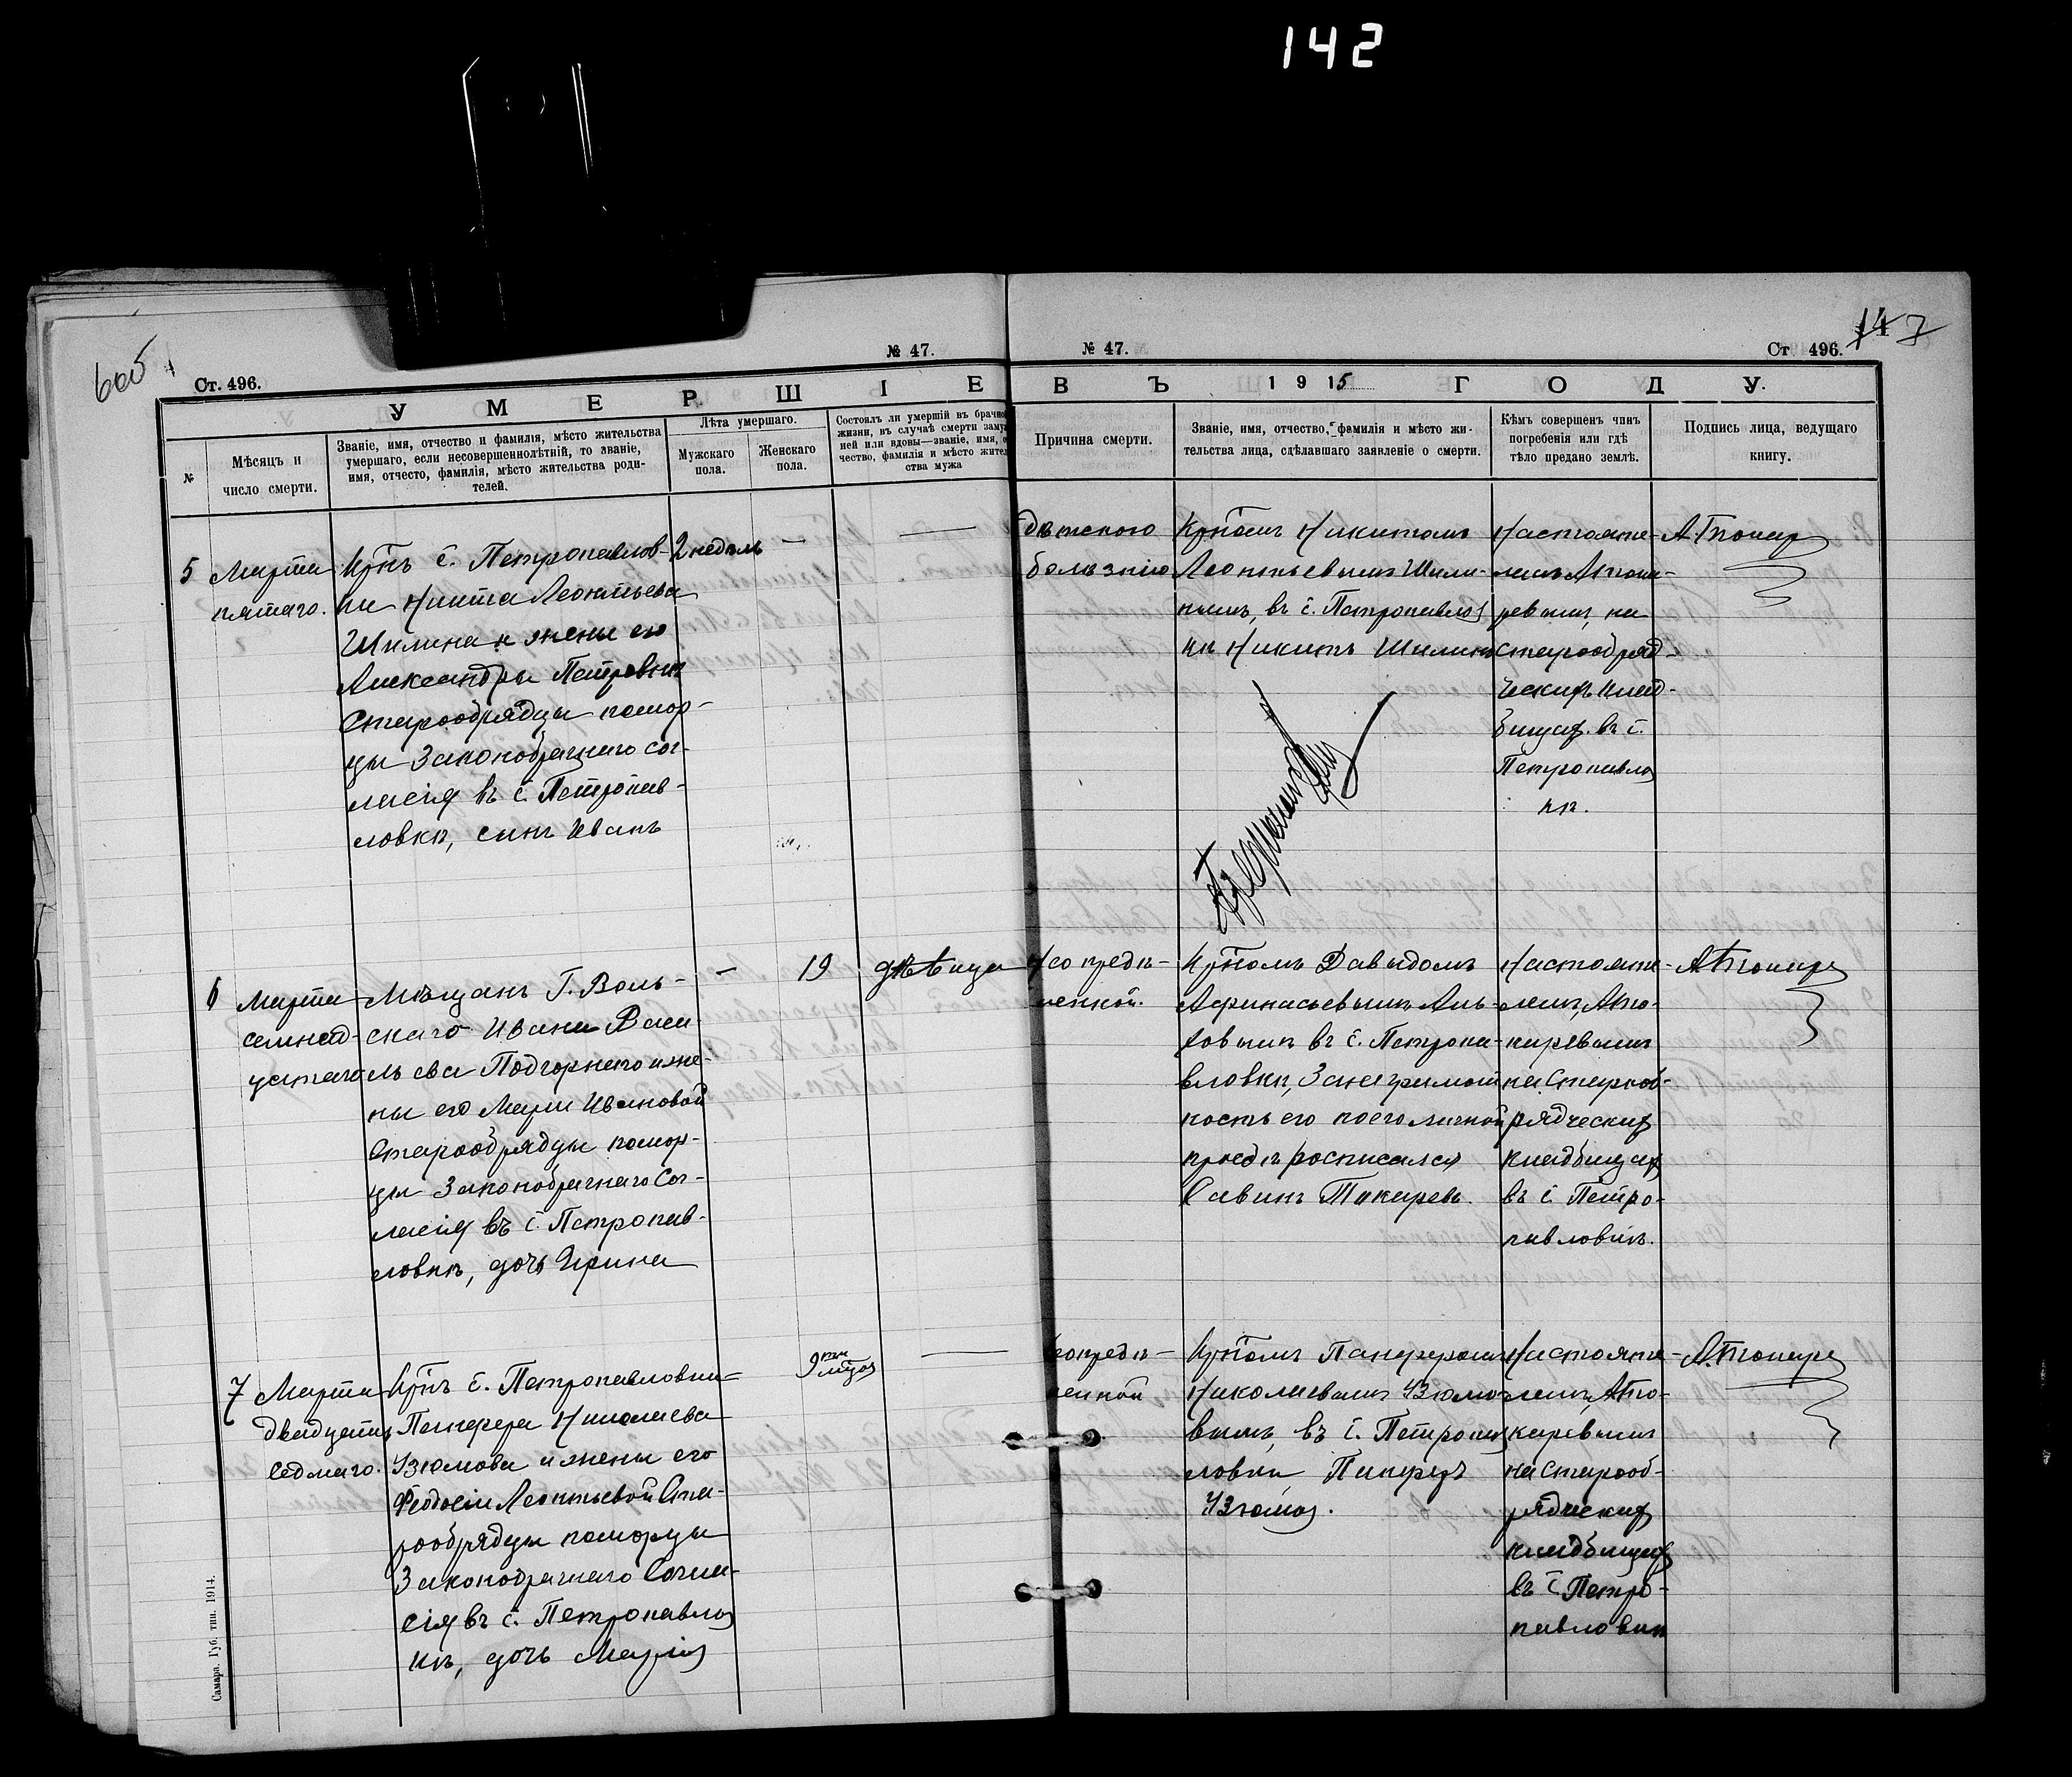 142
605
147
№ 47.
№ 47.
Ст. 496.
Ст 496.
УМЕРШІЕ ВЪ 1915 ГОДУ.
№
Мѣсяцъ и
число смерти.
Званіе, имя, отчество и фамилія, мѣсто жительства
умершаго, если несовершеннолѣтній, то званіе,
имя, отчесто, фамилія, мѣсто жительства роди-
телей.
Лѣта умершаго.
Мужскаго
пола.
Женскаго
пола.
Состоялъ ли умершій въ брачно
жизни, въ случаѣ смерти заму
ней или вдовы—званіе, имя, о
чество, фамилія и мѣсто жител
ства мужа
Причина смерти.
Званіе, имя, отчество, фамилія и мѣсто жи-
тельства лица, сдѣлавшаго заявленіе о смерти.
Кѣмъ совершенъ чинъ
погребенія или гдѣ
тѣло предано землѣ.
Подпись лица, ведущаго
книгу.
5
Марта
пятаго.
Крнъ с. Петропавлов-
ки Никита Леонтьева
Шилина и жены его
Александры Петровны
Старообрядцы помор-
цы Законобрачнаго сог-
ласія въ с. Петропав-
ловкѣ, сынъ Иванъ
2 недѣль
—
—
дѣтскою
болѣзнію
Крномъ Никитомъ
Леонтьевымъ Шили-
нымъ, въ с. Петропавлов
кѣ Никитъ Шилинъ
Настояте-
лемъ
на
старообряд-
ческихъ клад-
бищах. въ с.
Петропавлов
кѣ.
6
Марта
семнад-
цатаго
Мѣщанъ Г. Воль-
скаго Ивана Васи-
льева Подгорнаго и же-
ны его Марии Ивановой
Старообрядцы помор-
цы Законобрачнаго Сог-
ласія въ с. Петропав-
ловкѣ, дочь Ирина
—
19
дѣвица
Неопредѣ-
ленной.
Крномъ Давыдомъ
Афанасьевымъ
въ с. Петропа-
вловкѣ, За неграмот
ность его по его личной
прозбѣ росписался
Савинъ Токаревъ.
Настояте-
лемъ, А. То-
каревымъ
на Старооб-
рядческих
кладбищах
въ с. Петро-
павловкѣ.
7
Марта
двадцать
седмаго.
Крнъ с. Петропавловки
Панфера Николаева
Узюмова и жены его
Феодосіи Леонтьевой Ста-
рообрядцы поморцы
Законобрачнаго Согла-
сія въ с. Петропавлов
кѣ, дочь Марія
9 ти
мцов
—
неопредѣ-
ленной
Крномъ Панферомъ
Николаевымъ Узюмо-
вымъ, въ с. Петропав
ловки Панферъ
Узюмов.
Настояте-
лемъ, А. То-
каревымъ
на Старооб-
рядческих
кладбищах
въ с. Петро-
павловкѣ
Самара. Губ. тип. 1914.